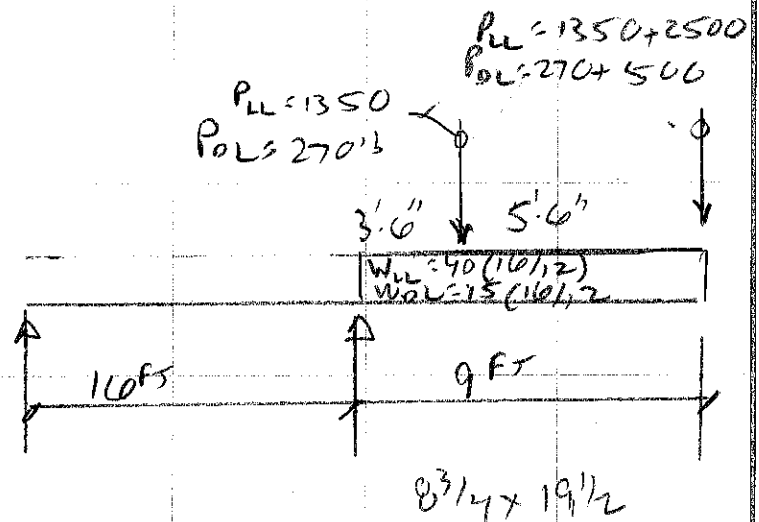 PLL = 1350+2500
PDL = 270+ 500
PLL = 1350
PDL = 270 lb
3'.6" 5'.6"
WLL = 40 (16/12)
WDL = 15 (16/12
16 FT 9 FT
8 3/4 x 19 1/2